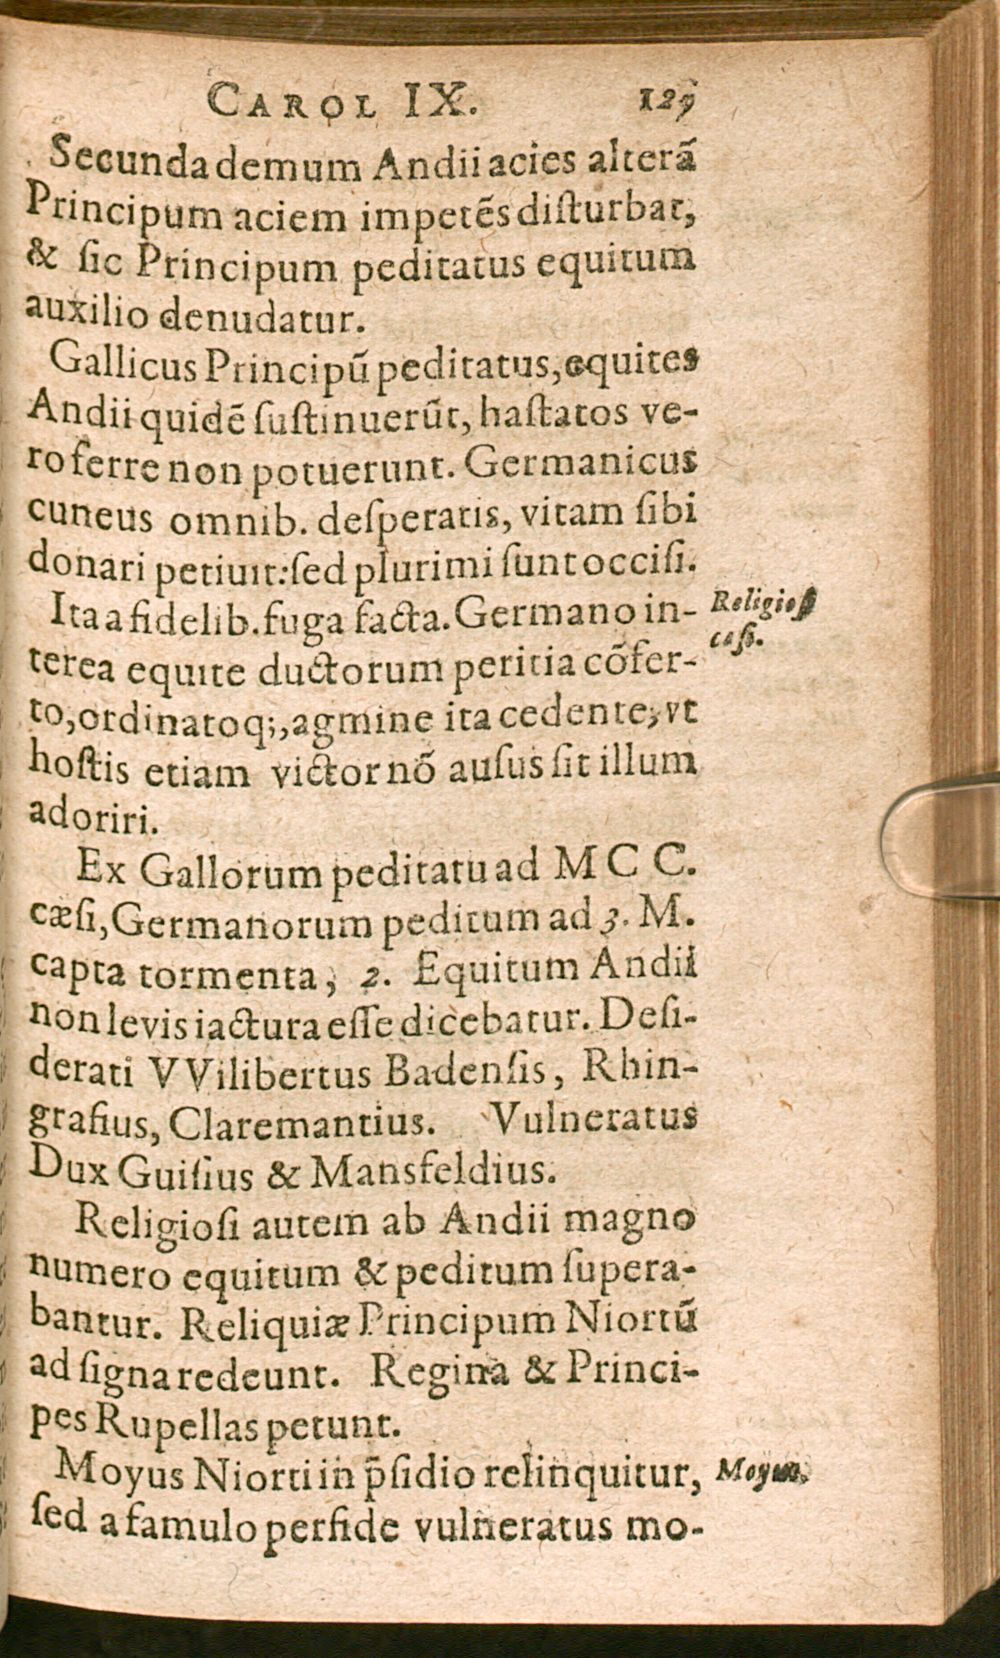 CAROL IX. 129
Secunda demum Andii acies alterã
Principum aciem impetẽs disturbat,
& sic Principum peditatus equitum
auxilio denudatur.
Gallicus Principũ peditatus, equites
Andii quidẽ sustinuerũt, hastatos ve-
ro ferre non potuerunt. Germanicus
cuneus omnib. desperatis, vitam sibi
donari petiuit: sed plurimi sunt occisi.
Ita a fidelib. fuga facta. Germano in-
Religiosi
terea equite ductorum peritia cõfer-
cæsi.
to, ordinatoq;, agmine ita cedente, vt
hostis etiam victor nõ ausus sit illum
adoriri.
Ex Gallorum peditatu ad M C C.
cæsi, Germanorum peditum ad 3. M.
capta tormenta, 2. Equitum Andii
non levis iactura esse dicebatur. Desi-
derati VVilibertus Badensis, Rhin-
grafius, Claremantius. Vulneratus
Dux Guisius & Mansfeldius.
Religiosi autem ab Andii magno
numero equitum & peditum supera-
bantur. Reliquiæ Principum Niortũ
ad signa redeunt. Regina & Princi-
pes Rupellas petunt.
Moyus Niorti in p̃sidio relinquitur,
Moyus.
sed a famulo perfide vulneratus mo-